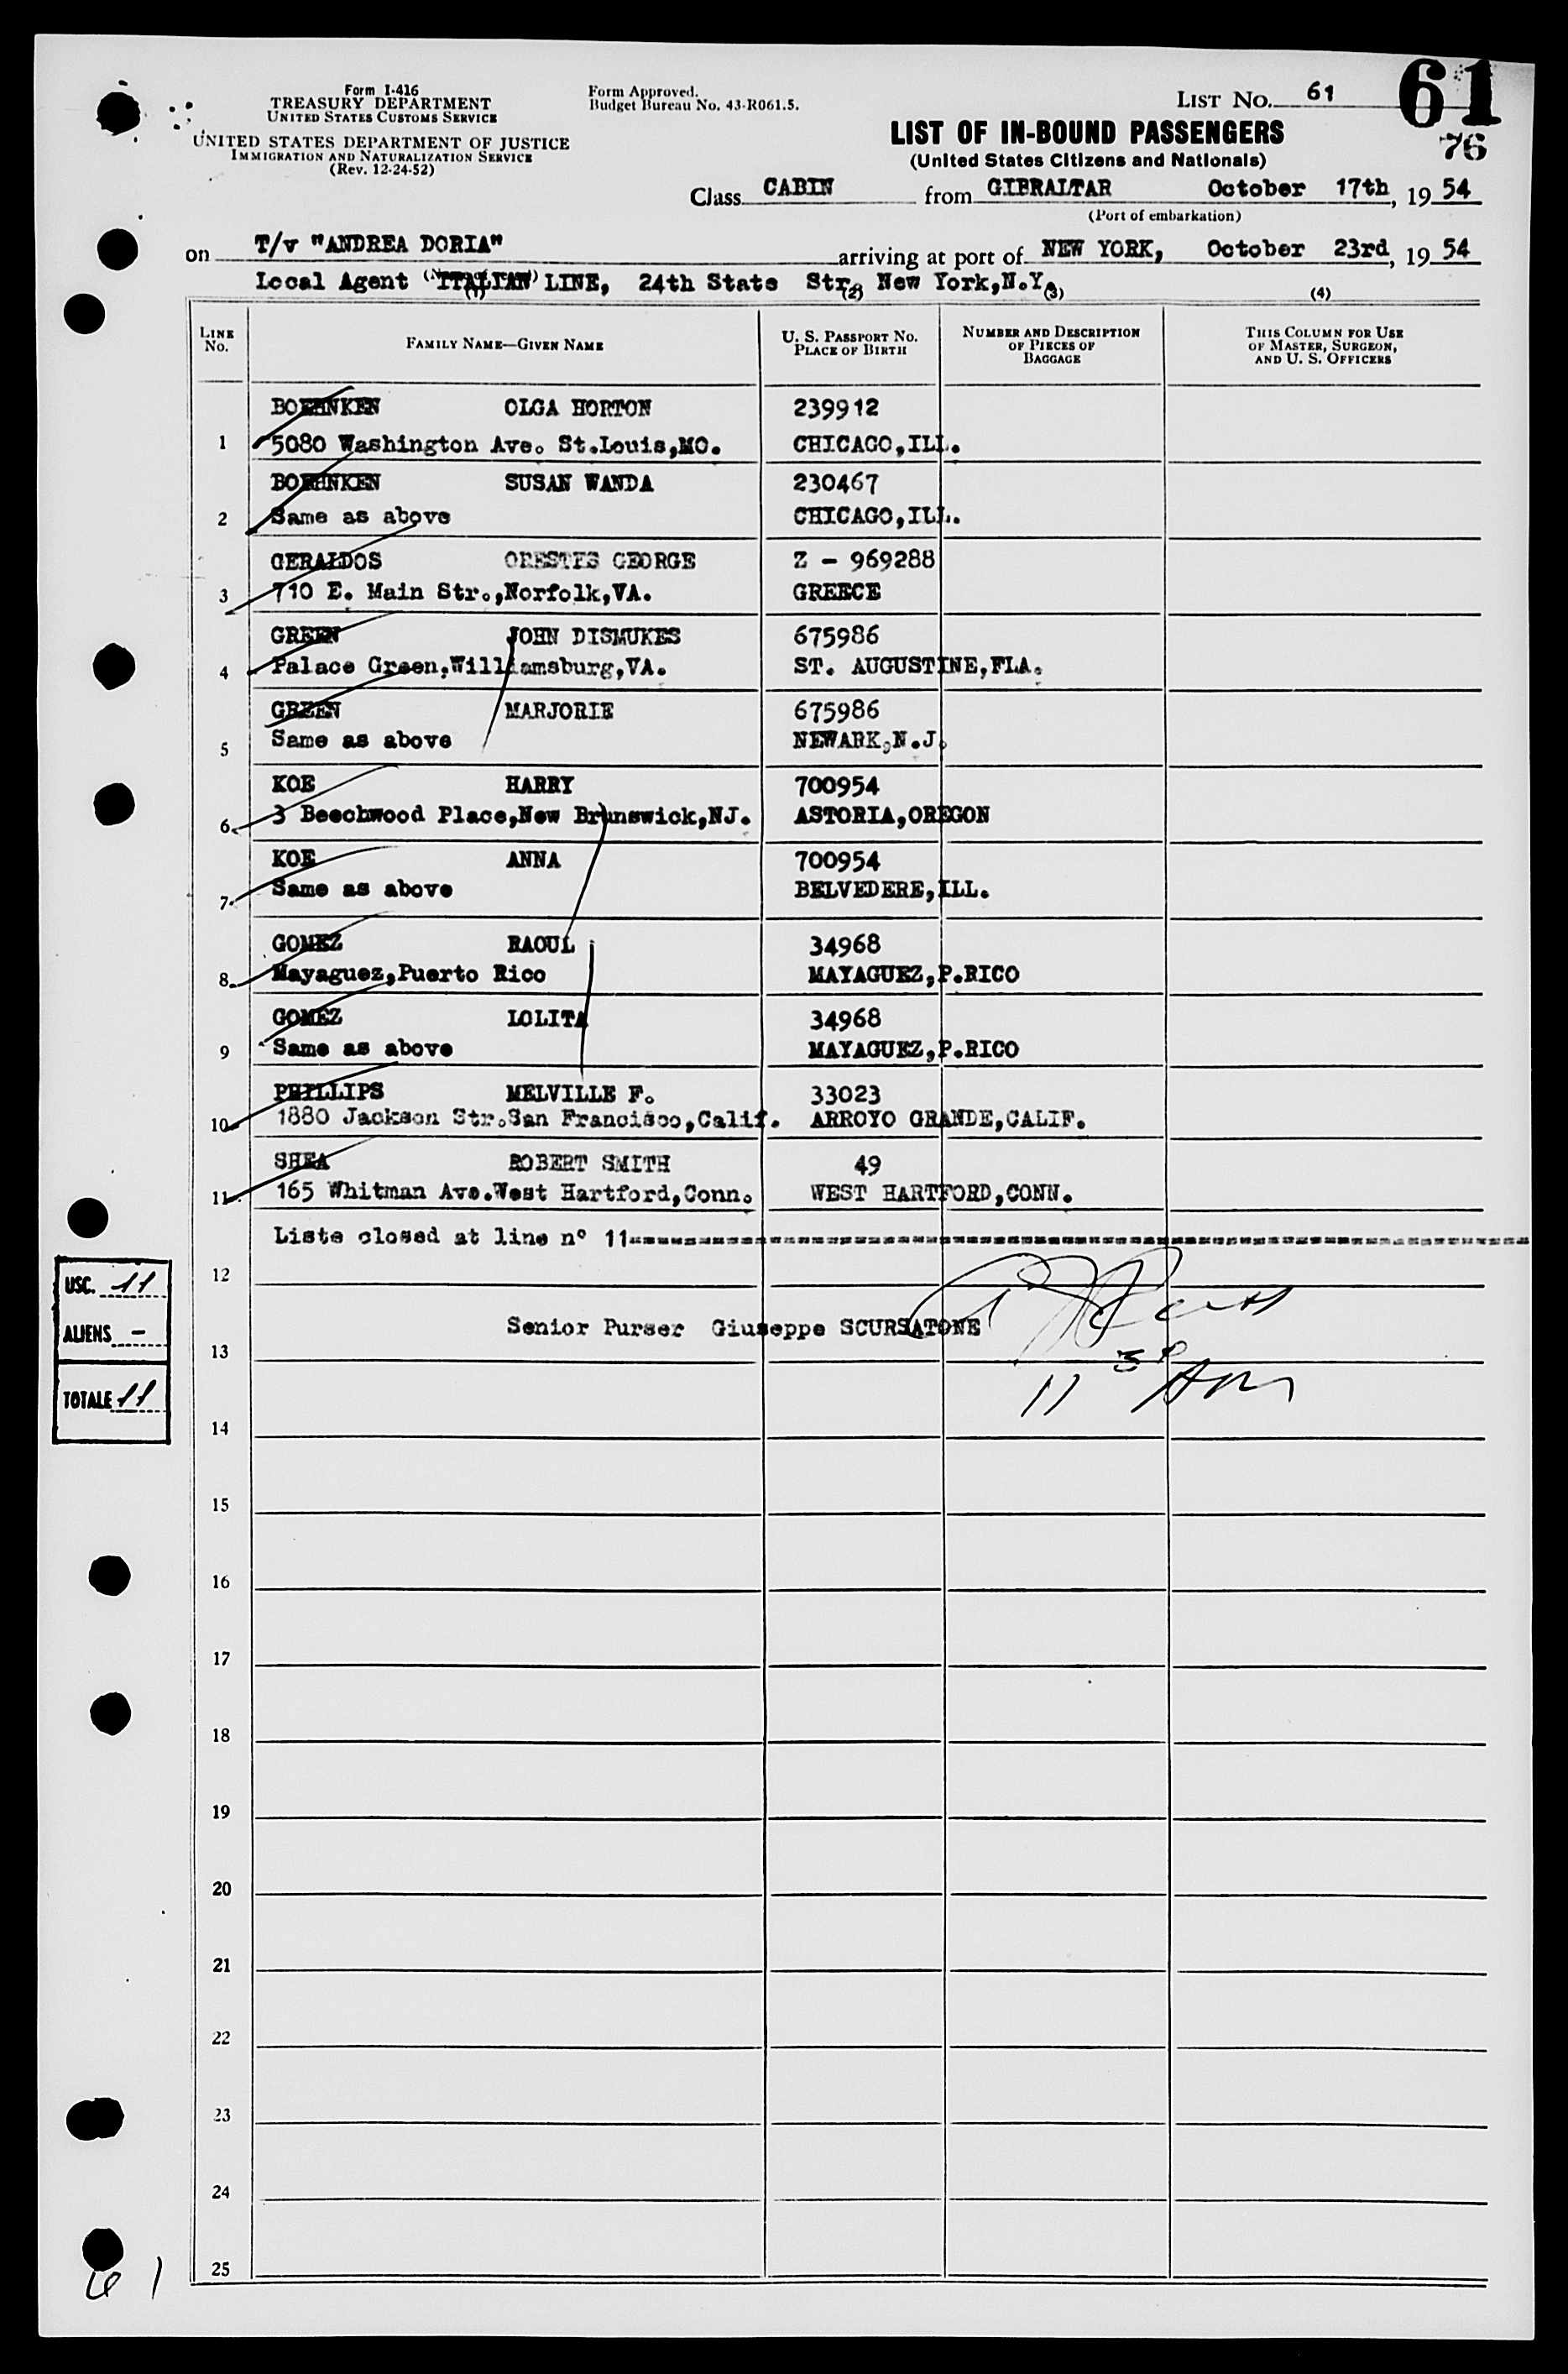 Form I-416
TREASURY DEPARTMENT
UNITED STATES CUSTOMS SERVICE
UNITED STATES DEPARTMENT OF JUSTICE
IMMIGRATION AND NATURALIZATION SERVICE
(Rev. 12-24-52)
Form Approved.
Budget Bureau No. 43-R061.5.
LIST NO. 61
61
76
LIST OF IN-BOUND PASSENGERS
(United States Citizens and Nationals)
Class CABIN from GIBRALTAR October 17th, 19 54
(Port of embarkation)
on T/v "ANDREA DORIA" arriving at port of NEW YORK, October 23rd, 19 54
Local Agent ITALIAN LINE, 24th State Str. New York,N.Y.
(1) (2) (3) (4)
LINE No. FAMILY NAME—GIVEN NAME U. S. PASSPORT NO. PLACE OF BIRTH NUMBER AND DESCRIPTION OF PIECES OF BAGGAGE THIS COLUMN FOR USE OF MASTER, SURGEON, AND U. S. OFFICERS
BOEHNKEN OLGA HORTON 239912
1 5080 Washington Ave. St.Louis,MO. CHICAGO,ILL.
BOEHNKEN SUSAN WANDA 230467
2 Same as above CHICAGO,ILL.
GERALDOS ORESTES GEORGE Z - 969288
3 710 E. Main Str.,Norfolk,VA. GREECE
GREEN JOHN DISMUKES 675986
4 Palace Green,Williamsburg,VA. ST. AUGUSTINE,FLA.
GREEN MARJORIE 675986
5 Same as above NEWARK,N.J.
KOE HARRY 700954
6 3 Beechwood Place,New Brunswick,NJ. ASTORIA,OREGON
KOE ANNA 700954
7 Same as above BELVEDERE,ILL.
GOMEZ RAOUL 34968
8 Mayaguez,Puerto Rico MAYAGUEZ,P.RICO
GOMEZ LOLITA 34968
9 Same as above MAYAGUEZ,P.RICO
PHILLIPS MELVILLE F. 33023
10 1880 Jackson Str.San Francisco,Calif. ARROYO GRANDE,CALIF.
SHEA ROBERT SMITH 49
11 165 Whitman Ave.West Hartford,Conn. WEST HARTFORD,CONN.
Liste closed at line nº 11
12
Senior Purser Giuseppe SCURSATONE
13
11 30 AM
14
USC. 11
ALIENS -
TOTALE 11
15
16
17
18
19
20
21
22
23
24
25
61